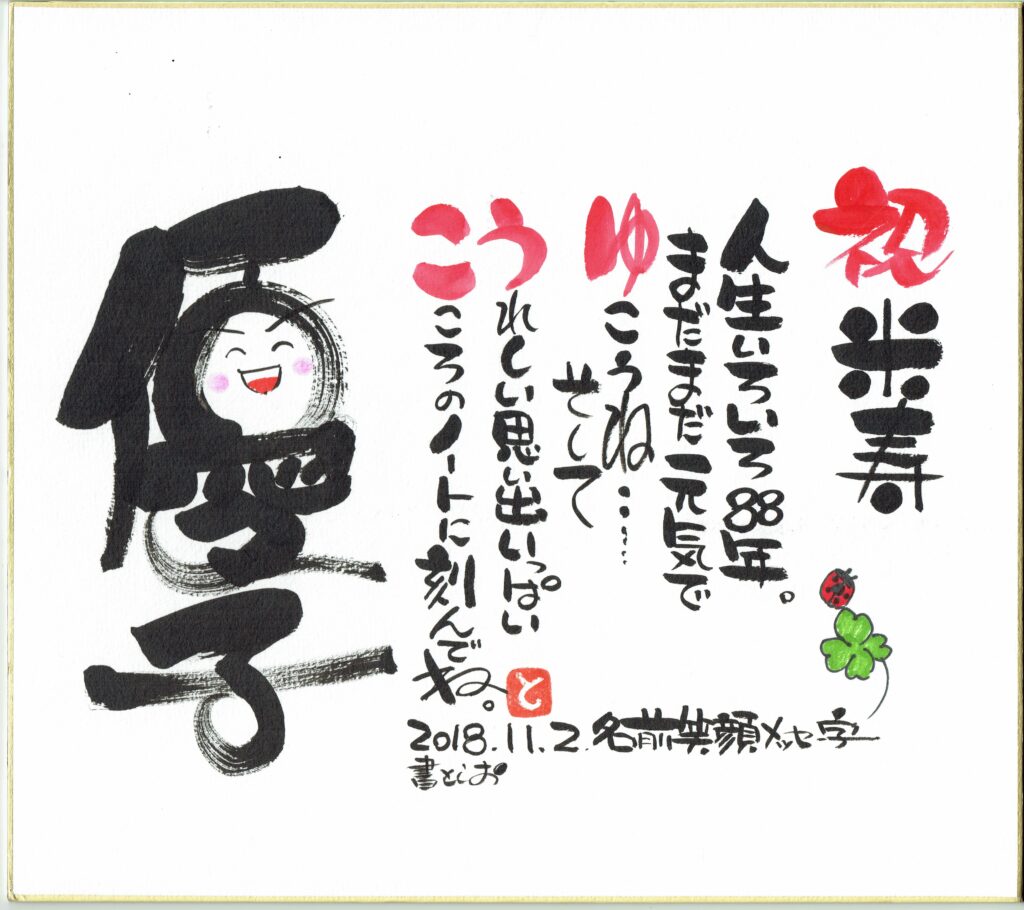 祝米寿
人生いろいろ88年。
まだまだ元気で
ゆこうね……
そして
うれしい思い出いっぱい
こころのノートに刻んでね。
と
優子
2018.11.2.名前笑顔メッセ字
書としお